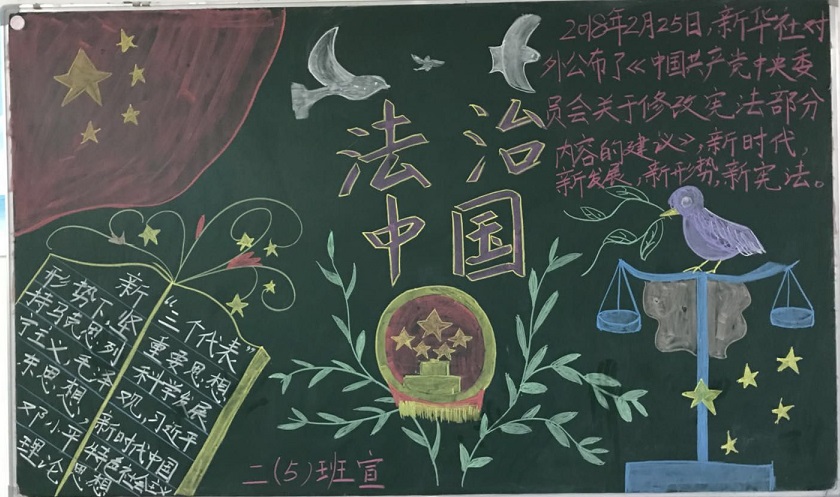 法治
中国
2018年2月25日,新华社对
外公布了《中国共产党中央委
员会关于修改宪法部分
内容的建议》,新时代,
新发展,新形势,新宪法。
新
形势下,坚
持马克思列
宁主义,毛泽
东思想,
邓小平
理论思想
"三个代表"
重要思想
科学发展
观,习近平
新时代中国
特色社会主义
二(5)班宣